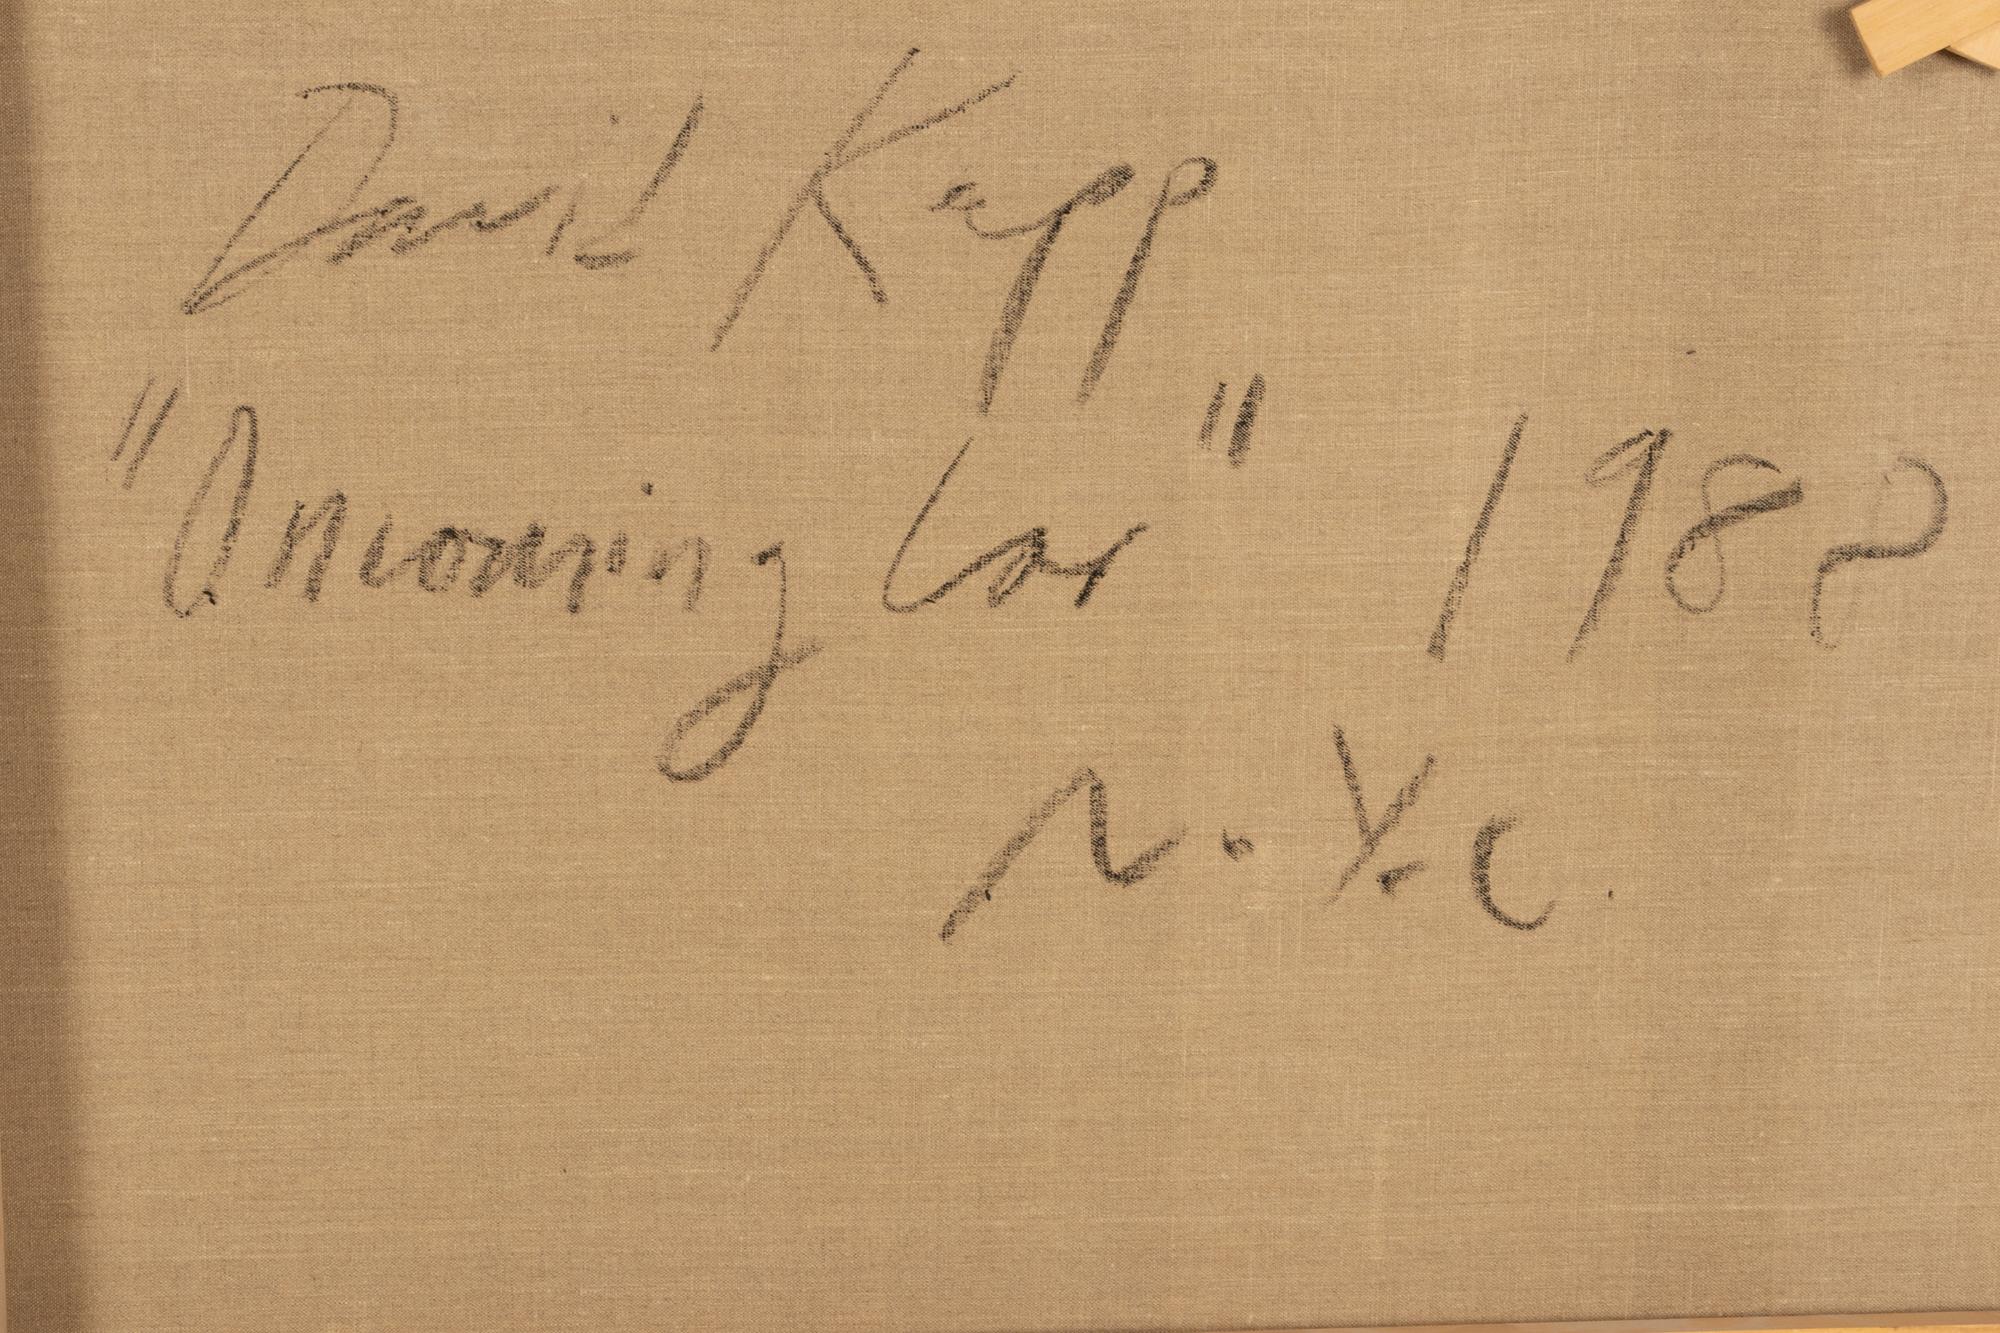 David Kapp
"Oncoming Car" 1982
N.Y.C.